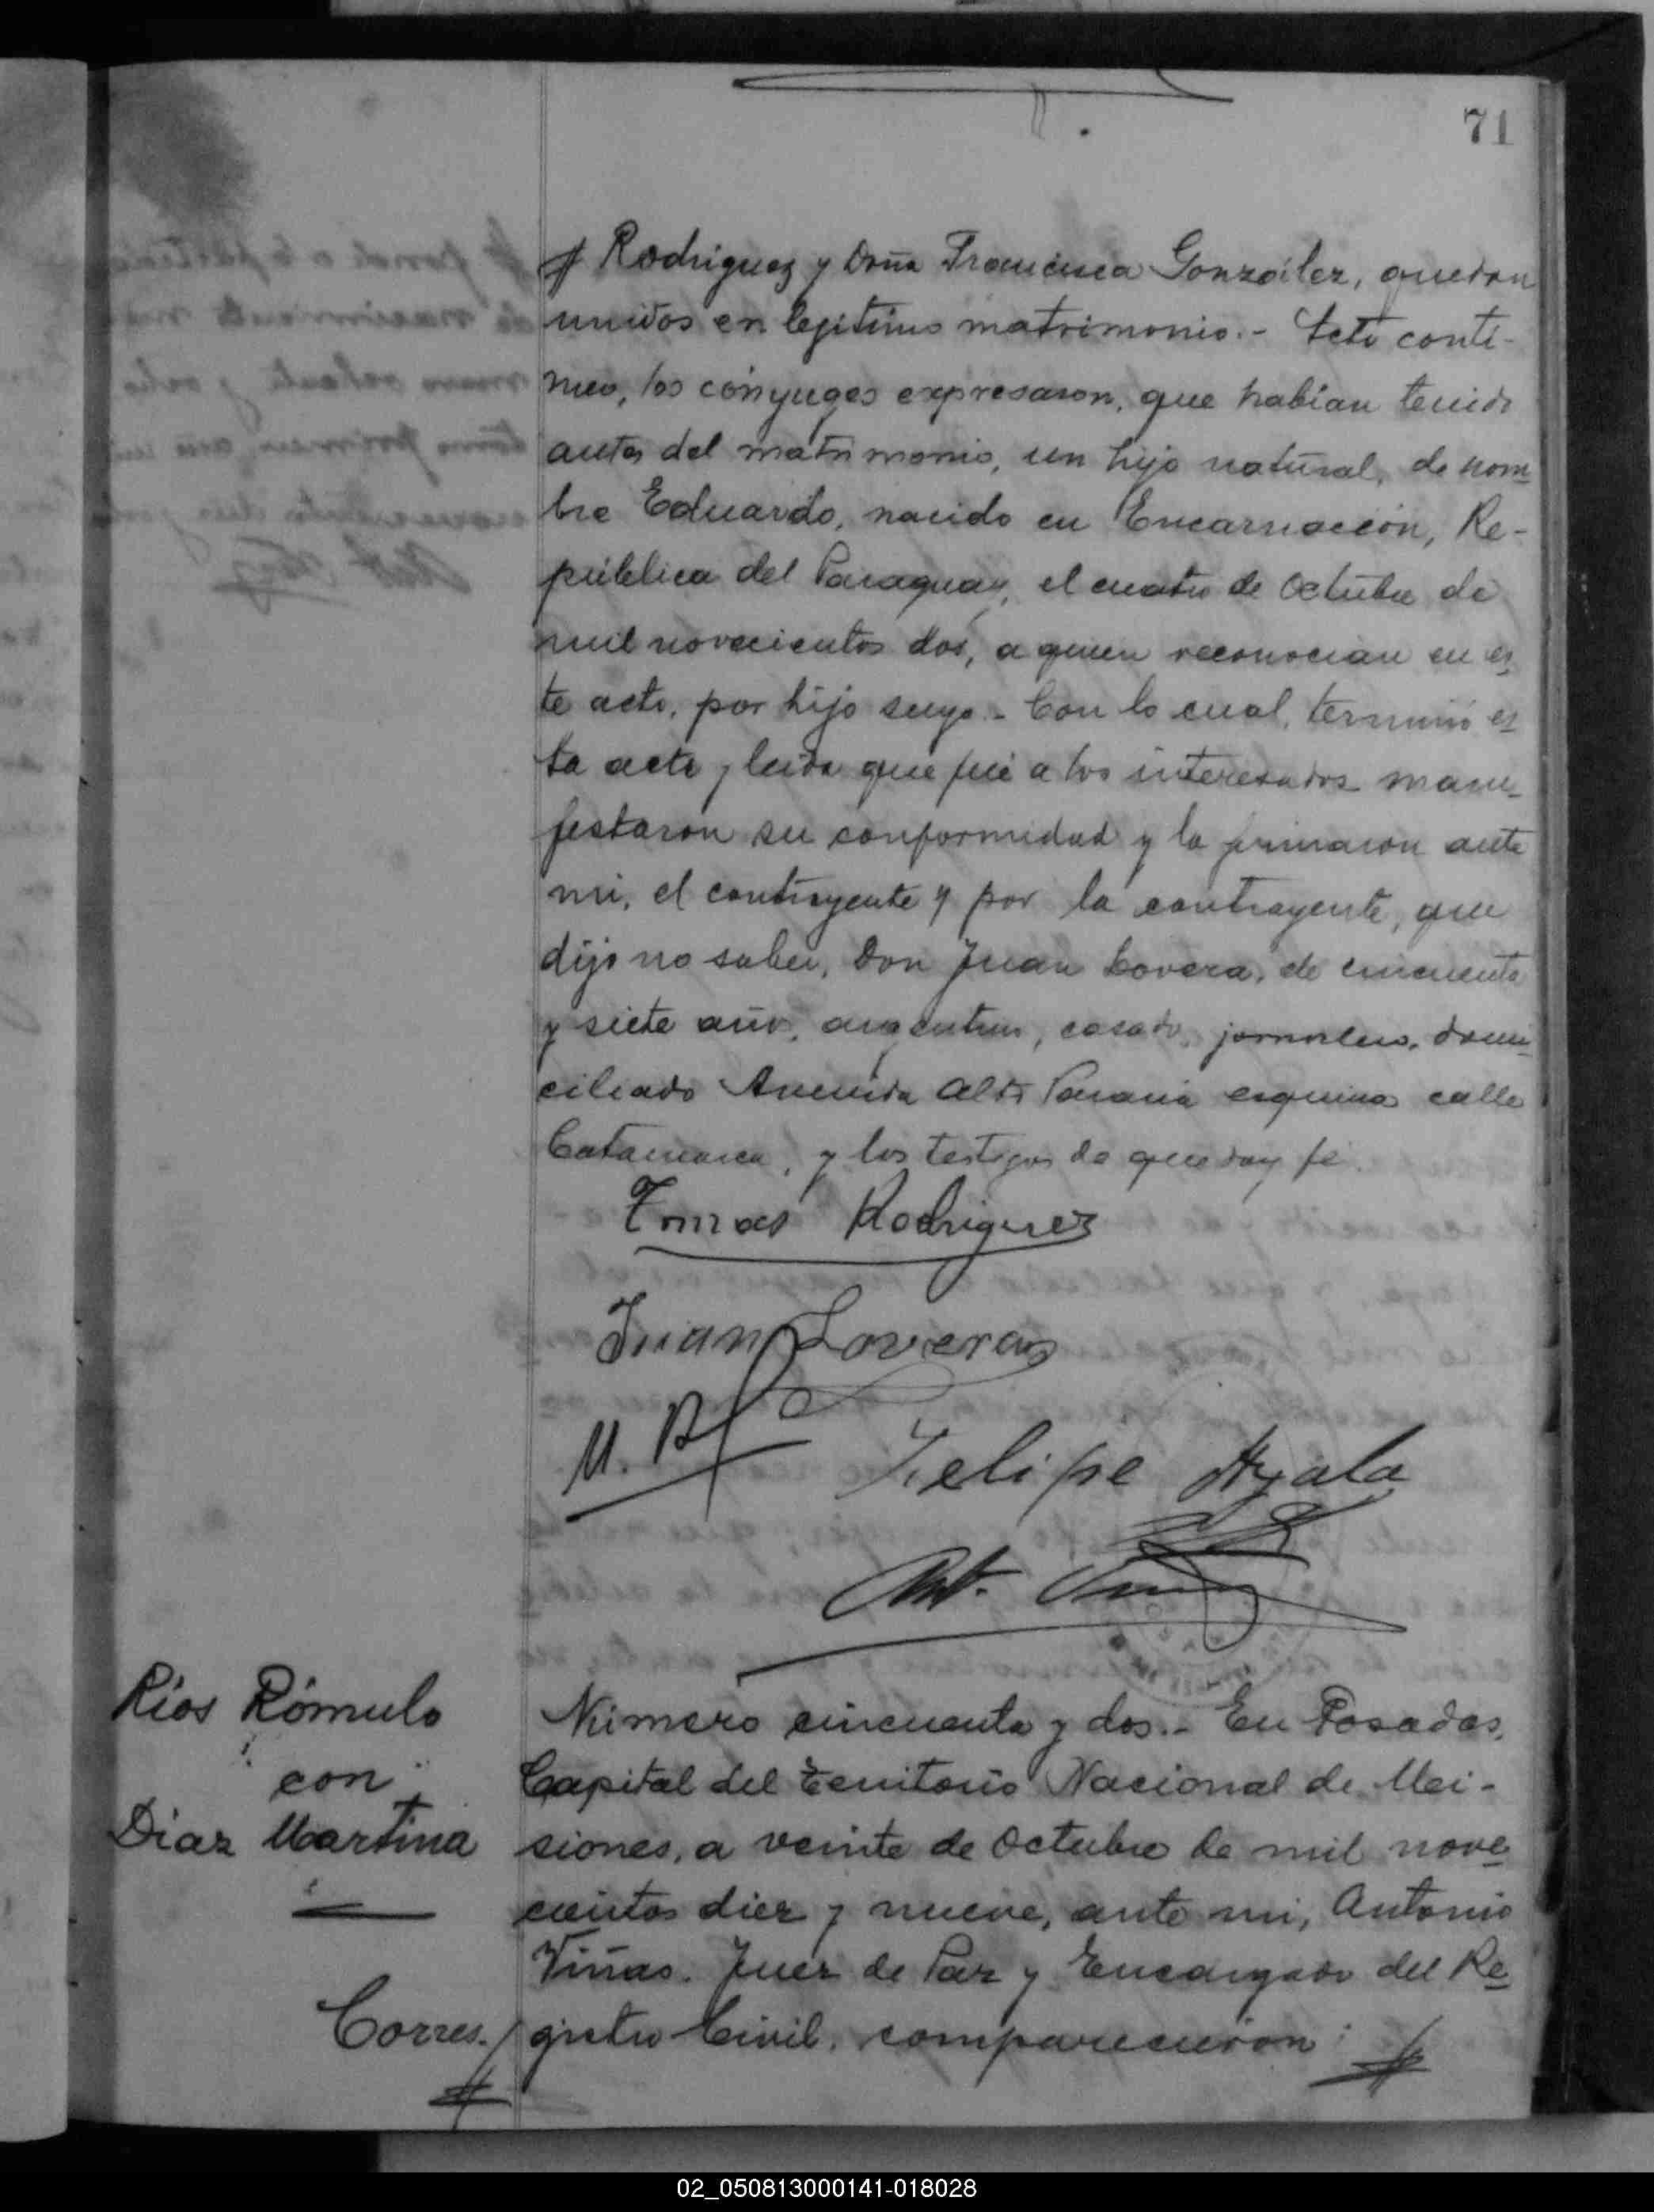 71
# Rodriguez y Doña Francisca González, quedan
unidos en legítimo matrimonio.- Acto conti-
nuo, los cónyuges expresaron, que habían tenido
antes del matrimonio, un hijo natural, de nom-
bre Eduardo, nacido en Encarnación, Re-
pública del Paraguay, el cuatro de Octubre de
mil novecientos dos, a quien reconocian en es-
te acto, por hijo suyo.- Con lo cual, terminó es-
ta acta y leida que fué a los interesados mani-
festaron su conformidad y la firmaron ante
mi, el contrayente y por la contrayente, que
dijo no saber, Don Juan Lovera, de cincuenta
y siete años, argentino, casado, jornalero, domi-
ciliado Avenida Alto Paraná esquina calle
Catamarca, y los testigos de que doy fé.
Tomas Rodriguez
Juan Loveras
M. B
Felipe Ayala
Ant. Viñas
Ríos Rómulo
con
Díaz Martina
Corres.
Número cincuenta y dos.- En Posadas,
Capital del Territorio Nacional de Mi-
siones, a veinte de Octubre de mil nove-
cientos diez y nueve, ante mi, Antonio
Viñas. Juez de Paz y Encargado del Re-
gistro Civil, comparecieron: #
#
02_050813000141-018028